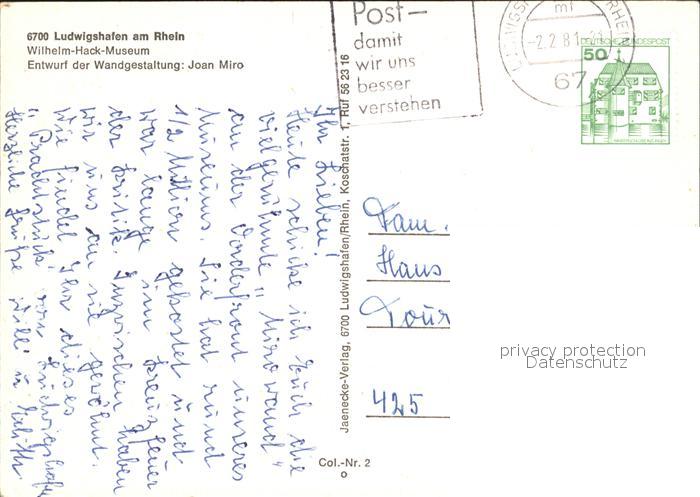 6700 Ludwigshafen am Rhein
Wilhelm-Hack-Museum
Entwurf der Wandgestaltung: Joan Miro
Post–
damit
wir uns
besser
verstehen
-2.2.81
67
DEUTSCHE BUNDESPOST
50
Ihr Lieben!
Heute schicke ich Euch die
vielgerühmte "Mirowand"
an der Vorderfront unseres
Museums. Sie hat rund
1/2 Million gekostet und
war lange im Kreuzfeuer
der Kritik. Inzwischen haben
wir uns an sie gewöhnt.
Wie findet Ihr dieses
"Prachtstück" von Ludwigshafen
Herzliche Grüße Willi u.
Jaenecke-Verlag, 6700 Ludwigshafen/Rhein, Koschatstr. 1, Ruf 56 23 16
Fam.
Hans
Tour
425
privacy protection
Datenschutz
Col.-Nr. 2